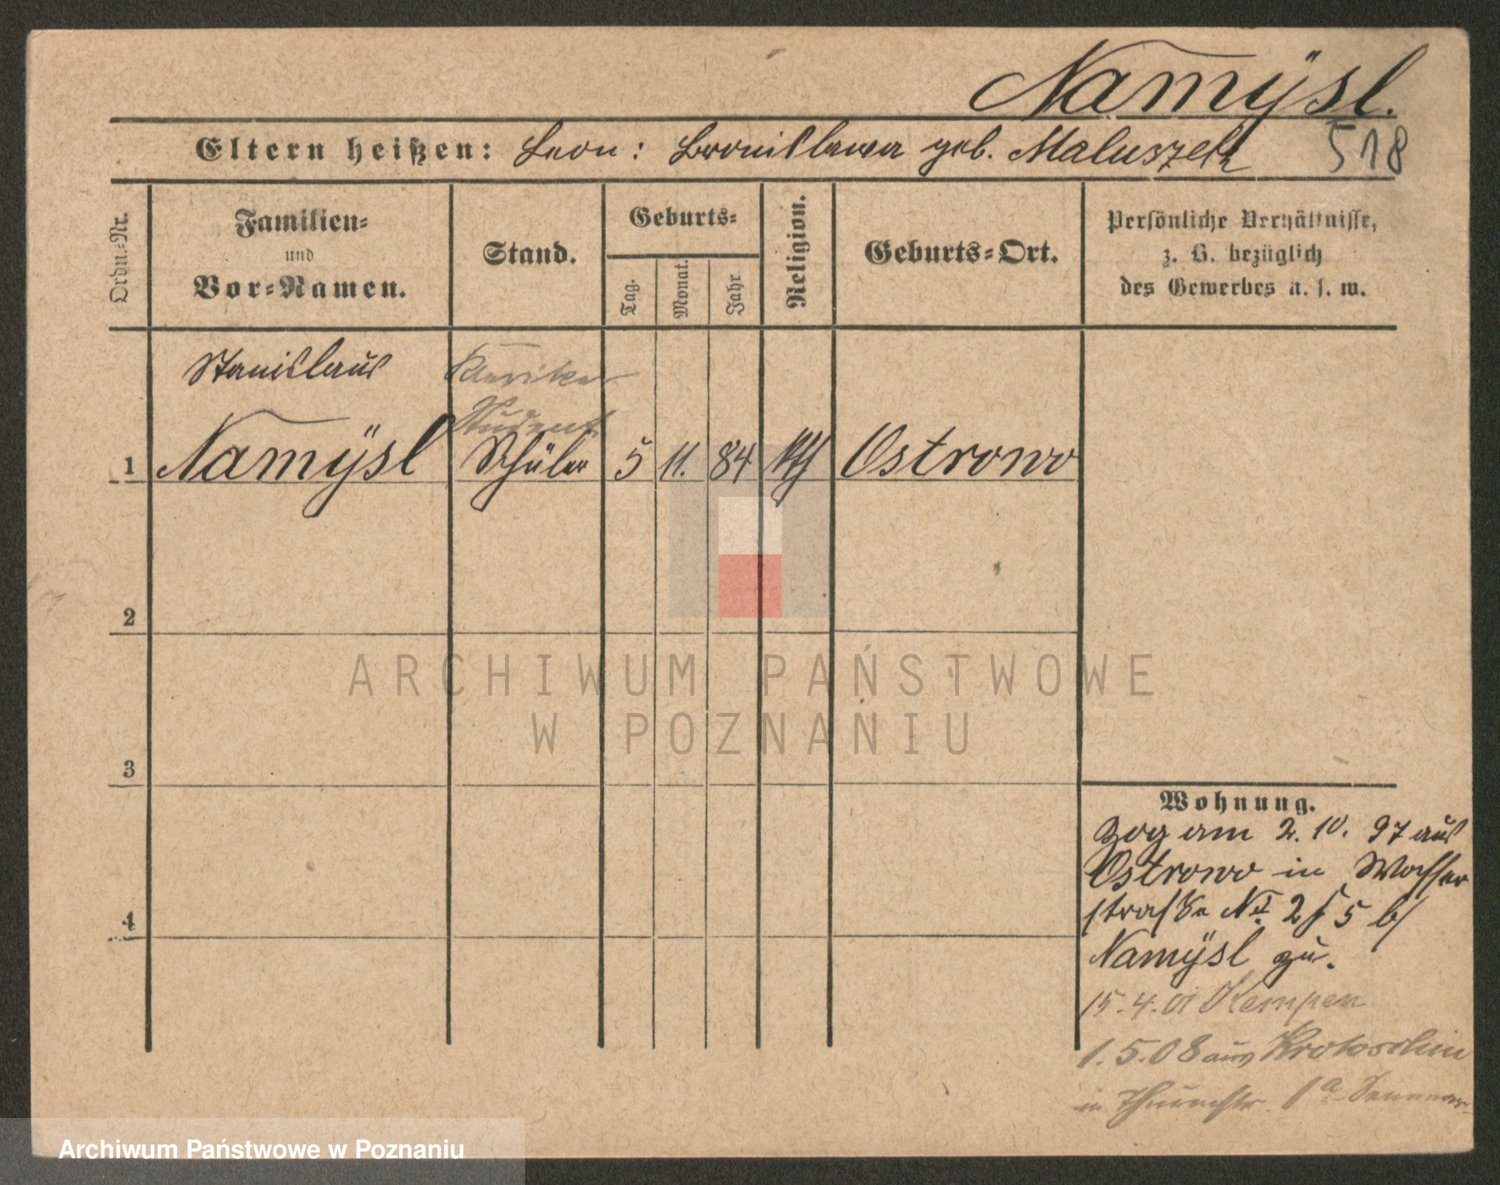 Namÿsl.
Eltern heißen: Leon: Bronislawa geb. Maluszek
518
Ordn.-Nr.
Familien-
und
Vor-Namen.
Stand.
Geburts-
Tag.
Monat.
Jahr
Religion.
Geburts-Ort.
Persönliche Verhältnisse,
z. B. bezüglich
des Gewerbes u. s. w.
Stanislaus
Kleriker
Student
1 Namÿsl Schüler 5 11. 84 kth Ostrowo
2
3
4
ARCHIWUM PAŃSTWOWE
W POZNANIU
Wohnung.
Zog am 2. 10. 97 aus
Ostrowo in Wasser
straße No 2 5 b/
Namÿsl zu.
15.4.01 Kempen
1.5.08 aus Krotoschin
in Thurmstr.
Archiwum Państwowe w Poznaniu